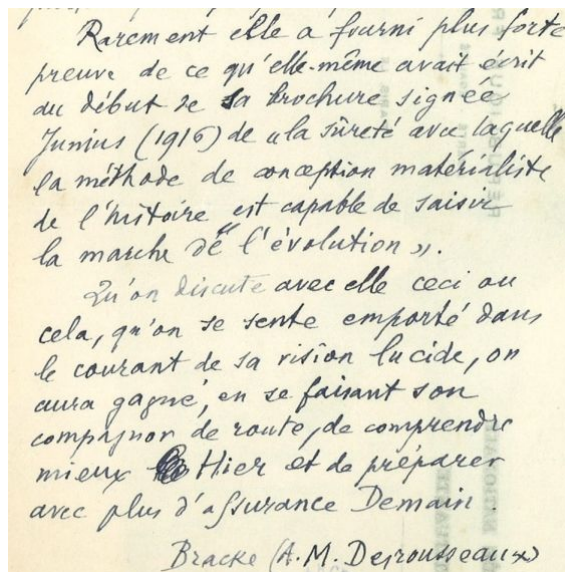 Rarement elle a fourni plus forte
preuve de ce qu'elle-même avait écrit
au début de sa brochure signée
Junius (1916) de « la sûreté avec laquelle
la méthode de conception matérialiste
de l'histoire est capable de saisir
la marche de l'évolution ».
Qu'on discute avec elle ceci ou
cela, qu'on se sente emporté dans
le courant de sa vision lucide, on
aura gagné, en se faisant son
compagnon de route, de comprendre
mieux Hier et de préparer
avec plus d'assurance Demain.
Bracke (A. M. Desrousseaux)